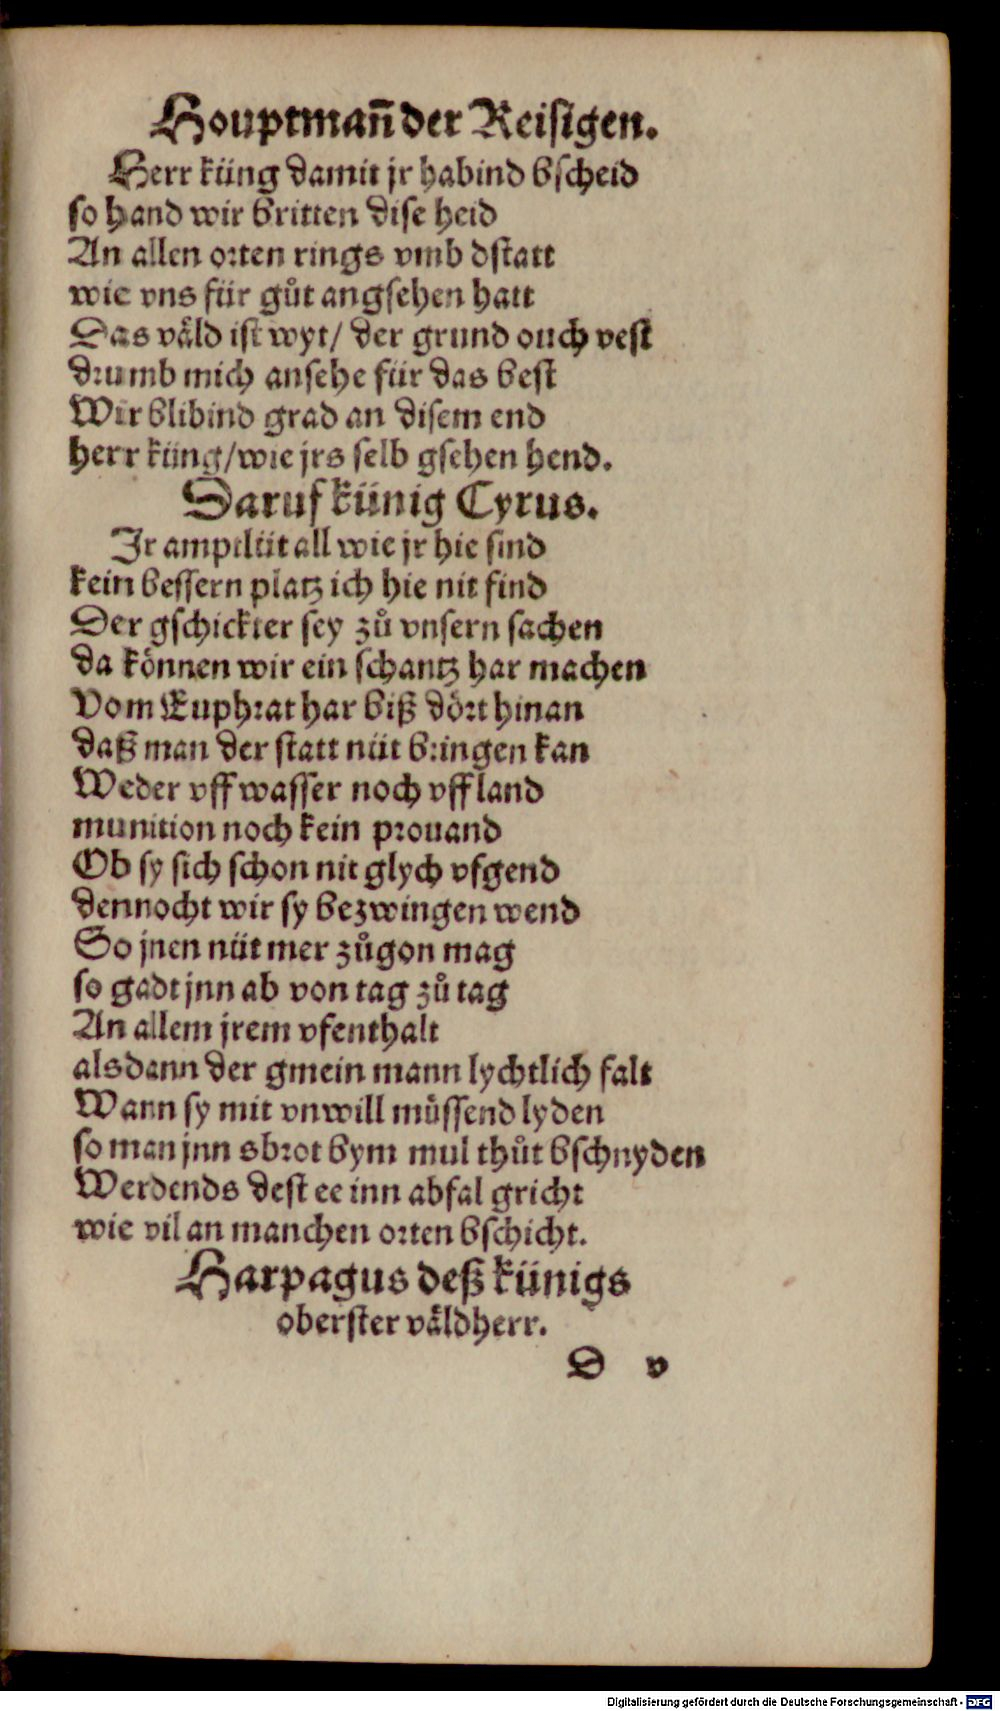 Houptmañ der Reisigen.
Herr küng damit jr habind bscheid
so hand wir britten dise heid
An allen orten rings vmb dstatt
wie vns für gůt angsehen hatt
Das väld ist wyt/ der grund ouch vest
drumb mich ansehe für das best
Wir blibind grad an disem end
herr küng/wie jrs selb gsehen hend.
Daruf künig Cyrus.
Jr amptlüt all wie jr hie sind
kein bessern platz ich hie nit find
Der gschickter sey zů vnsern sachen
da können wir ein schantz har machen
Vom Euphrat har biß dört hinan
daß man der statt nüt bringen kan
Weder vff wasser noch vff land
munition noch kein prouand
Ob sy sich schon nit glych vfgend
dennocht wir sy bezwingen wend
So jnen nüt mer zůgon mag
so gadt jnn ab von tag zů tag
An allem jrem vfenthalt
alsdann der gmein mann lychtlich falt
Wann sy mit vnwill müssend lyden
so man jnn sbrot bym mul thůt bschnyden
Werdends dest ee inn abfal gricht
wie vil an manchen orten bschicht.
Harpagus deß künigs
oberster väldherr.
D v
Digitalisierung gefördert durch die Deutsche Forschungsgemeinschaft - DFG